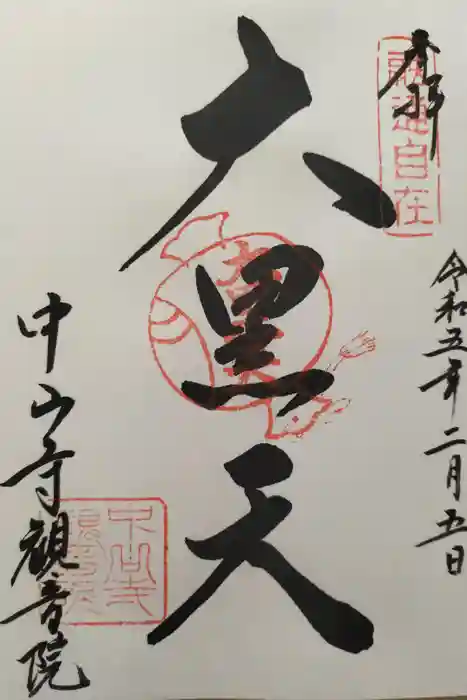 奉拝
融通自在
令和五年二月五日
大黒天
中山寺観音院
中山寺